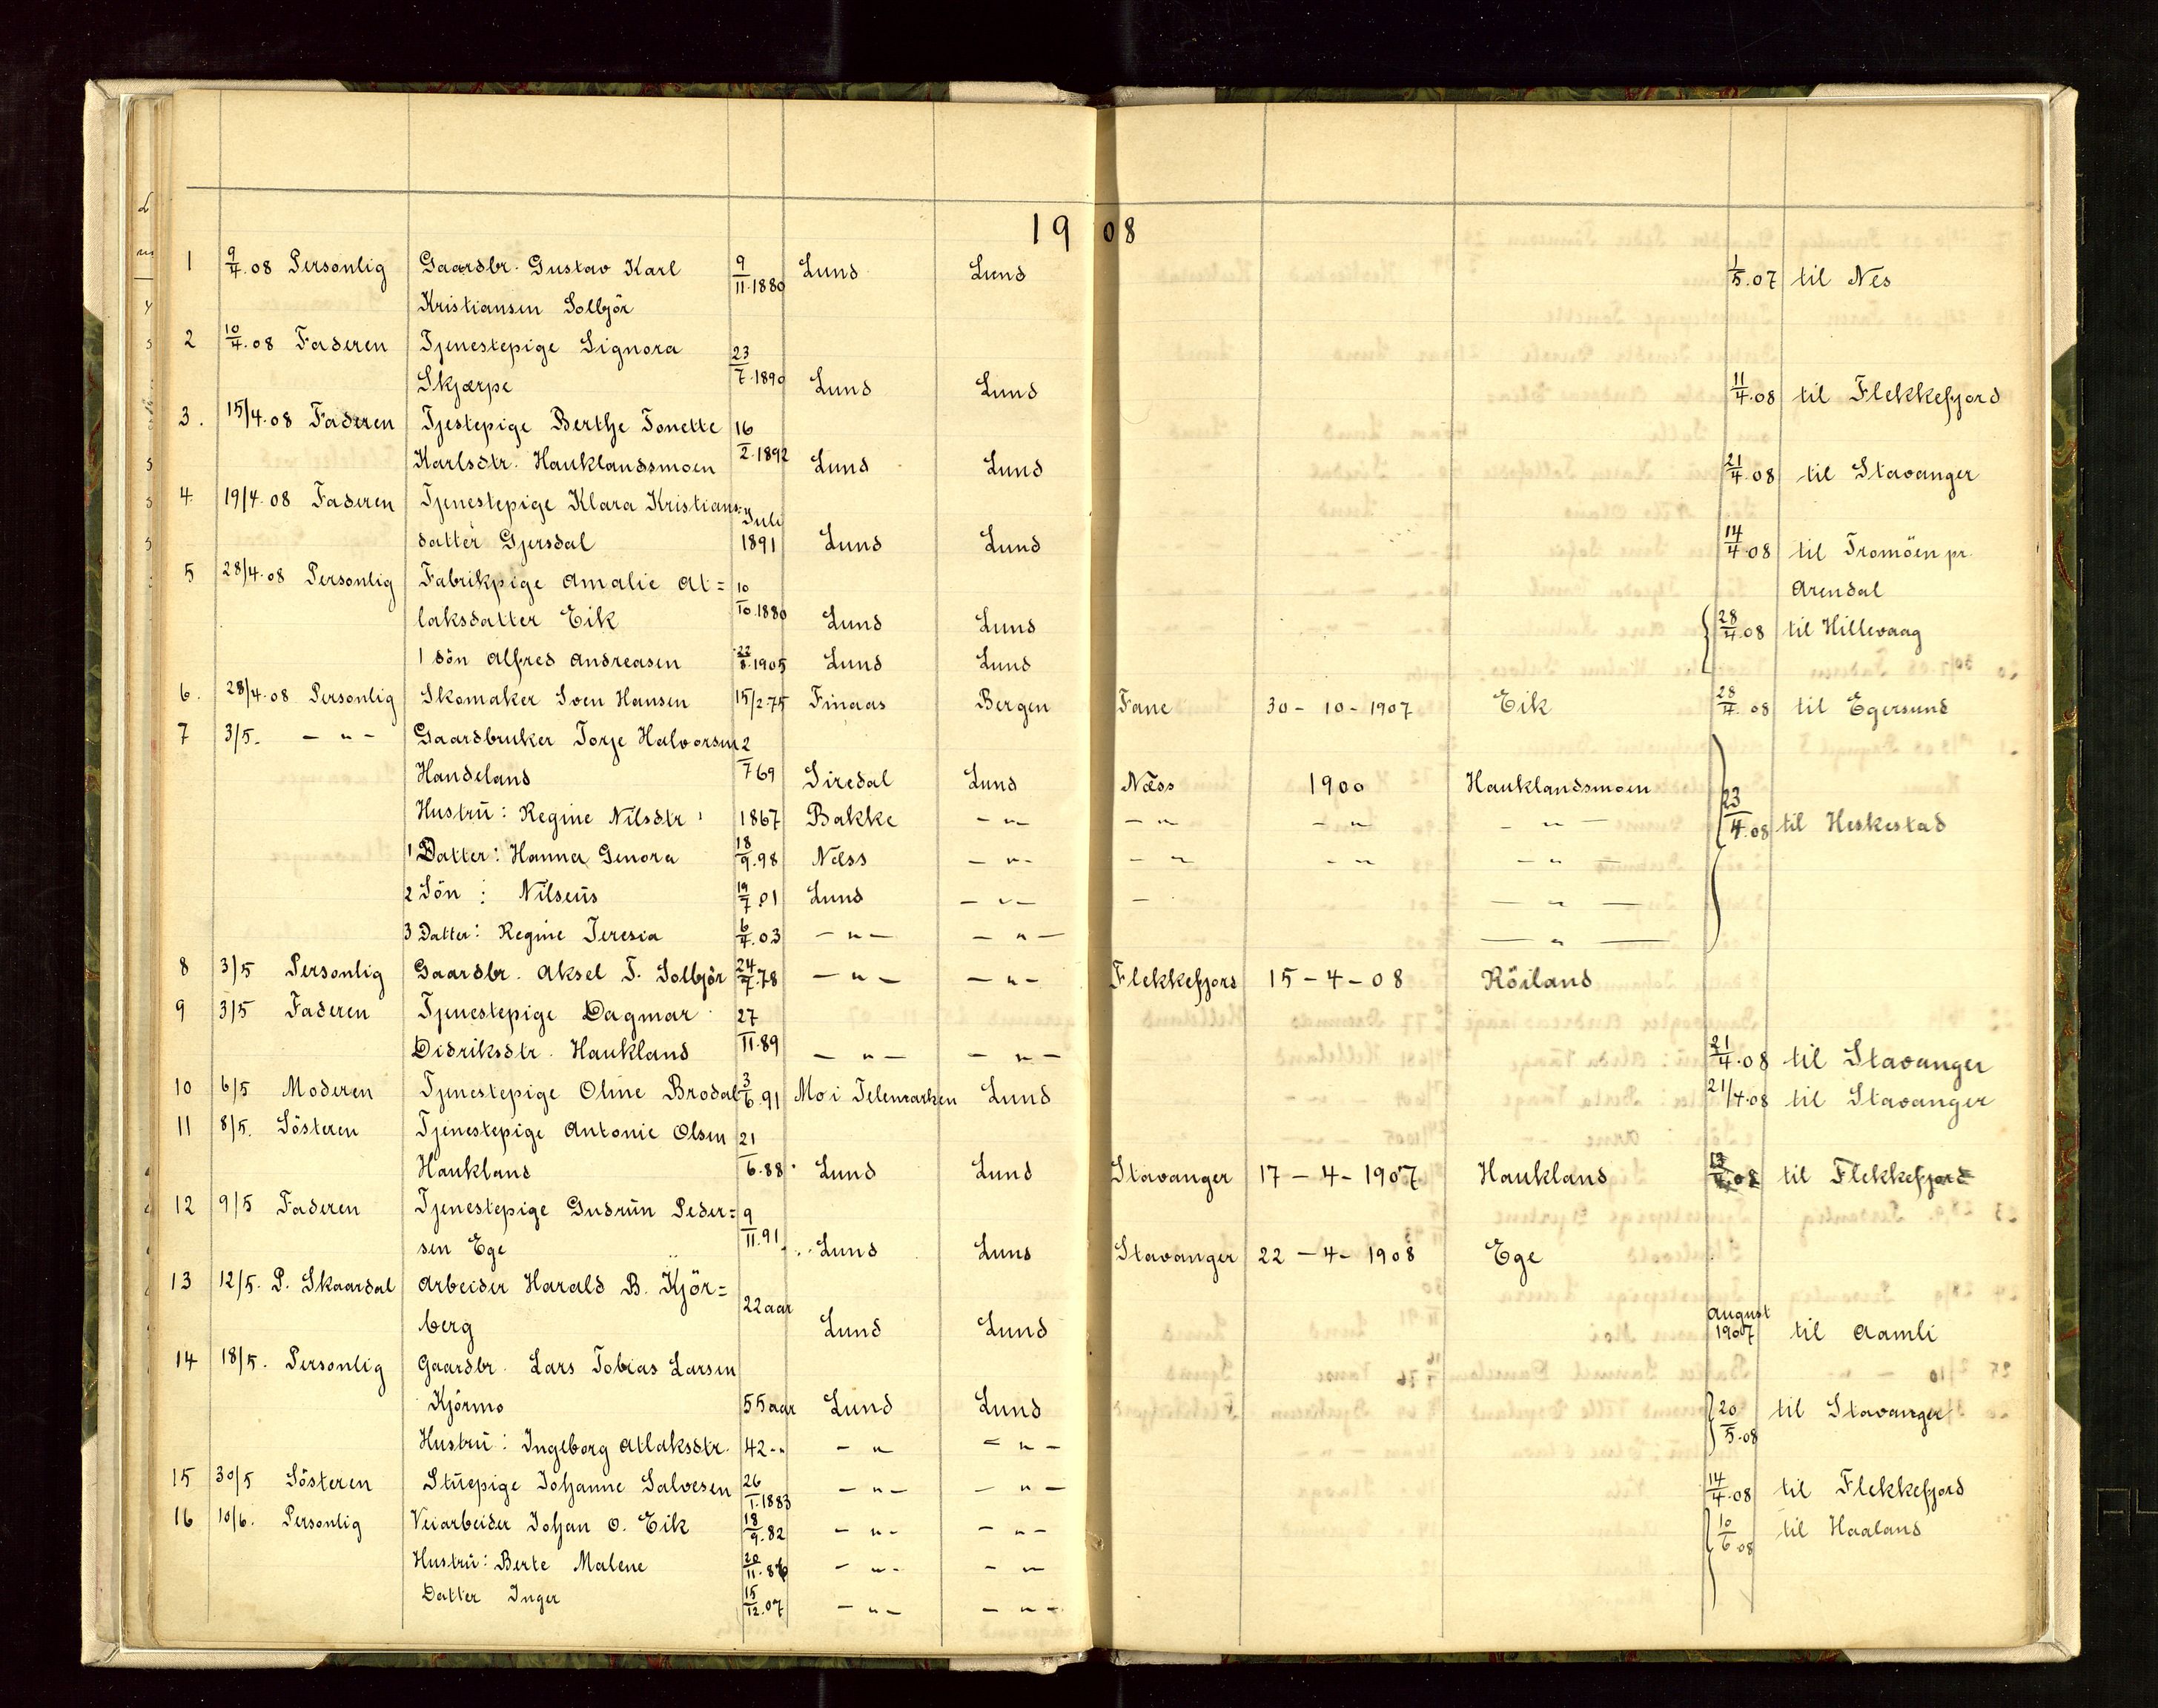 1908
1 9/4.08 Personlig Gaardbr. Gustav Karl 9/11.1880 Lund Lund 1/5.07 til Nes
Kristiansen Solbjör
2 10/4.08 Faderen Tjenestepige Signora 23/7.1890
Skjærpe Lund Lund 11/4.08 til Flekkefjord
3. 15/4.08 Faderen Tjestepige Berthe Tonette 16/2.1892
Karlsdtr. Hauklandsmoen Lund Lund 21/4.08 til Stavanger
4 19/4.08 Faderen Tjenestepige Klara Kristians- Juli
datter Gjersdal 1891 Lund Lund 14/4.08 til Tromöen pr.
Arendal
5 28/4.08 Personlig Fabrikpige Amalie At= 10/10.1880
laksdatter Eik Lund Lund 28/4.08 til Hillevaag
1 Sön Alfred Andreasen 22/8.1905 Lund Lund
6. 28/4.08 Personlig Skomaker Sven Hansen 15/2.75 Finaas Bergen Fane 30-10-1907 Eik 28/4.08 til Egersund
7 3/5. -"- Gaardbruker Torje Halvorsen 2/7 69
Handeland Siredal Lund Næss 1900 Hauklandsmoen 23/4.08 til Heskestad
Hustru: Regine Nilsdtr 1867 Bakke -"- -"- -"- -"-
1 Datter: Hanna Genora 18/9.98 Næss -"- -"- -"- -"-
2 Sön: Nilseus 19/7.01 Lund -"- - -"-
3 Datter: Regine Teresia 6/4.03 -"- -"- -"-
8 3/5 Personlig Gaardbr. Aksel T. Solbjör 24/7.78 -"- -"- Flekkefjord 15-4-08 Röiland
9 3/5 Faderen Tjenestepige Dagmar 27/11.89
Didriksdtr. Haukland -"- -"- 21/4.08 til Stavanger
10 6/5 Moderen Tjenestepige Oline Brodal 3/6.91 Mo i Telemarken Lund 21/4.08 til Stavanger
11 8/5. Sösteren Tjenestepige Antonie Olsen 21/6.88
Haukland Lund Lund Stavanger 17-4-1907 Haukland til Flekkefjord
12 9/5 Faderen Tjenestepige Gudrun Peder= 9/11.91
sen Ege Lund Lund Stavanger 22-4-1908 Ege
13 12/5. P. Skaardal Arbeider Harald B. Kjör= 22 aar
berg Lund Lund August 1907 til Aamli
14 18/5. Personlig Gaardbr. Lars Tobias Larsen
Kjörmo 55 aar Lund Lund 20/5.08 til Stavanger
Hustru: Ingeborg Atlaksdtr. 42-" -" -"-
15 30/5 Sösteren Stuepige Johanne Salvesen 26/1.1883 -"- -"- 14/4.08 til Flekkefjord
16 10/6. Personlig Veiarbeider Johan O. Eik 18/9.82 -"- -"- 10/6.08 til Haaland
Hustru: Berte Malene 20/11.86 -"- -"
Datter Inger 15/12.07 -"- -"-